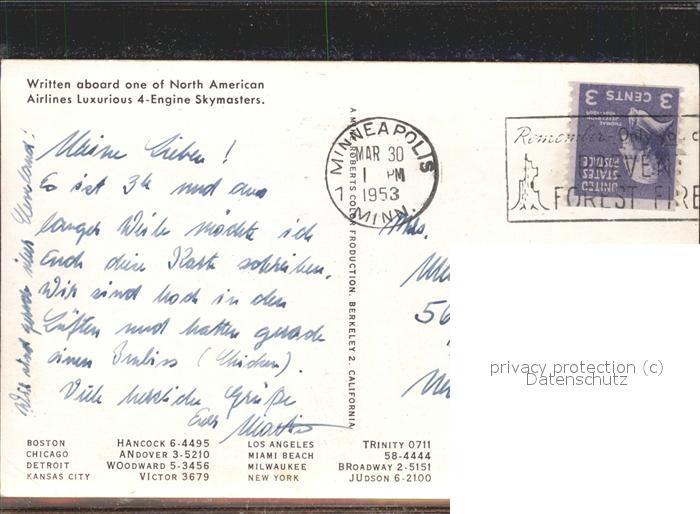 Written aboard one of North American
Airlines Luxurious 4-Engine Skymasters.
Meine Lieben!
Es ist 3h und aus
langer Weile möchte ich
Euch diese Karte schreiben.
Wir sind hoch in den
Lüften und hatten gerade
einen Imbiss (Chicken).
Viele herzliche Grüße
Euer
Wir sind gerade über Cleveland!
A MIKE ROBERTS COLOR PRODUCTION, BERKELEY 2, CALIFORNIA
MINNEAPOLIS
MAR 30
1 PM
1953
MINN.
Remember - Only you c
VEN
FOREST FIRE
3 CENTS 3
THOMAS JEFFERSON
UNITED
STATES
POSTAGE
Mrs.
56
privacy protection (c)
Datenschutz
BOSTON HANCOCK 6-4495 LOS ANGELES TRINITY 0711
CHICAGO ANDOVER 3-5210 MIAMI BEACH 58-4444
DETROIT WOODWARD 5-3456 MILWAUKEE BROADWAY 2-5151
KANSAS CITY VICTOR 3679 NEW YORK JUDSON 6-2100